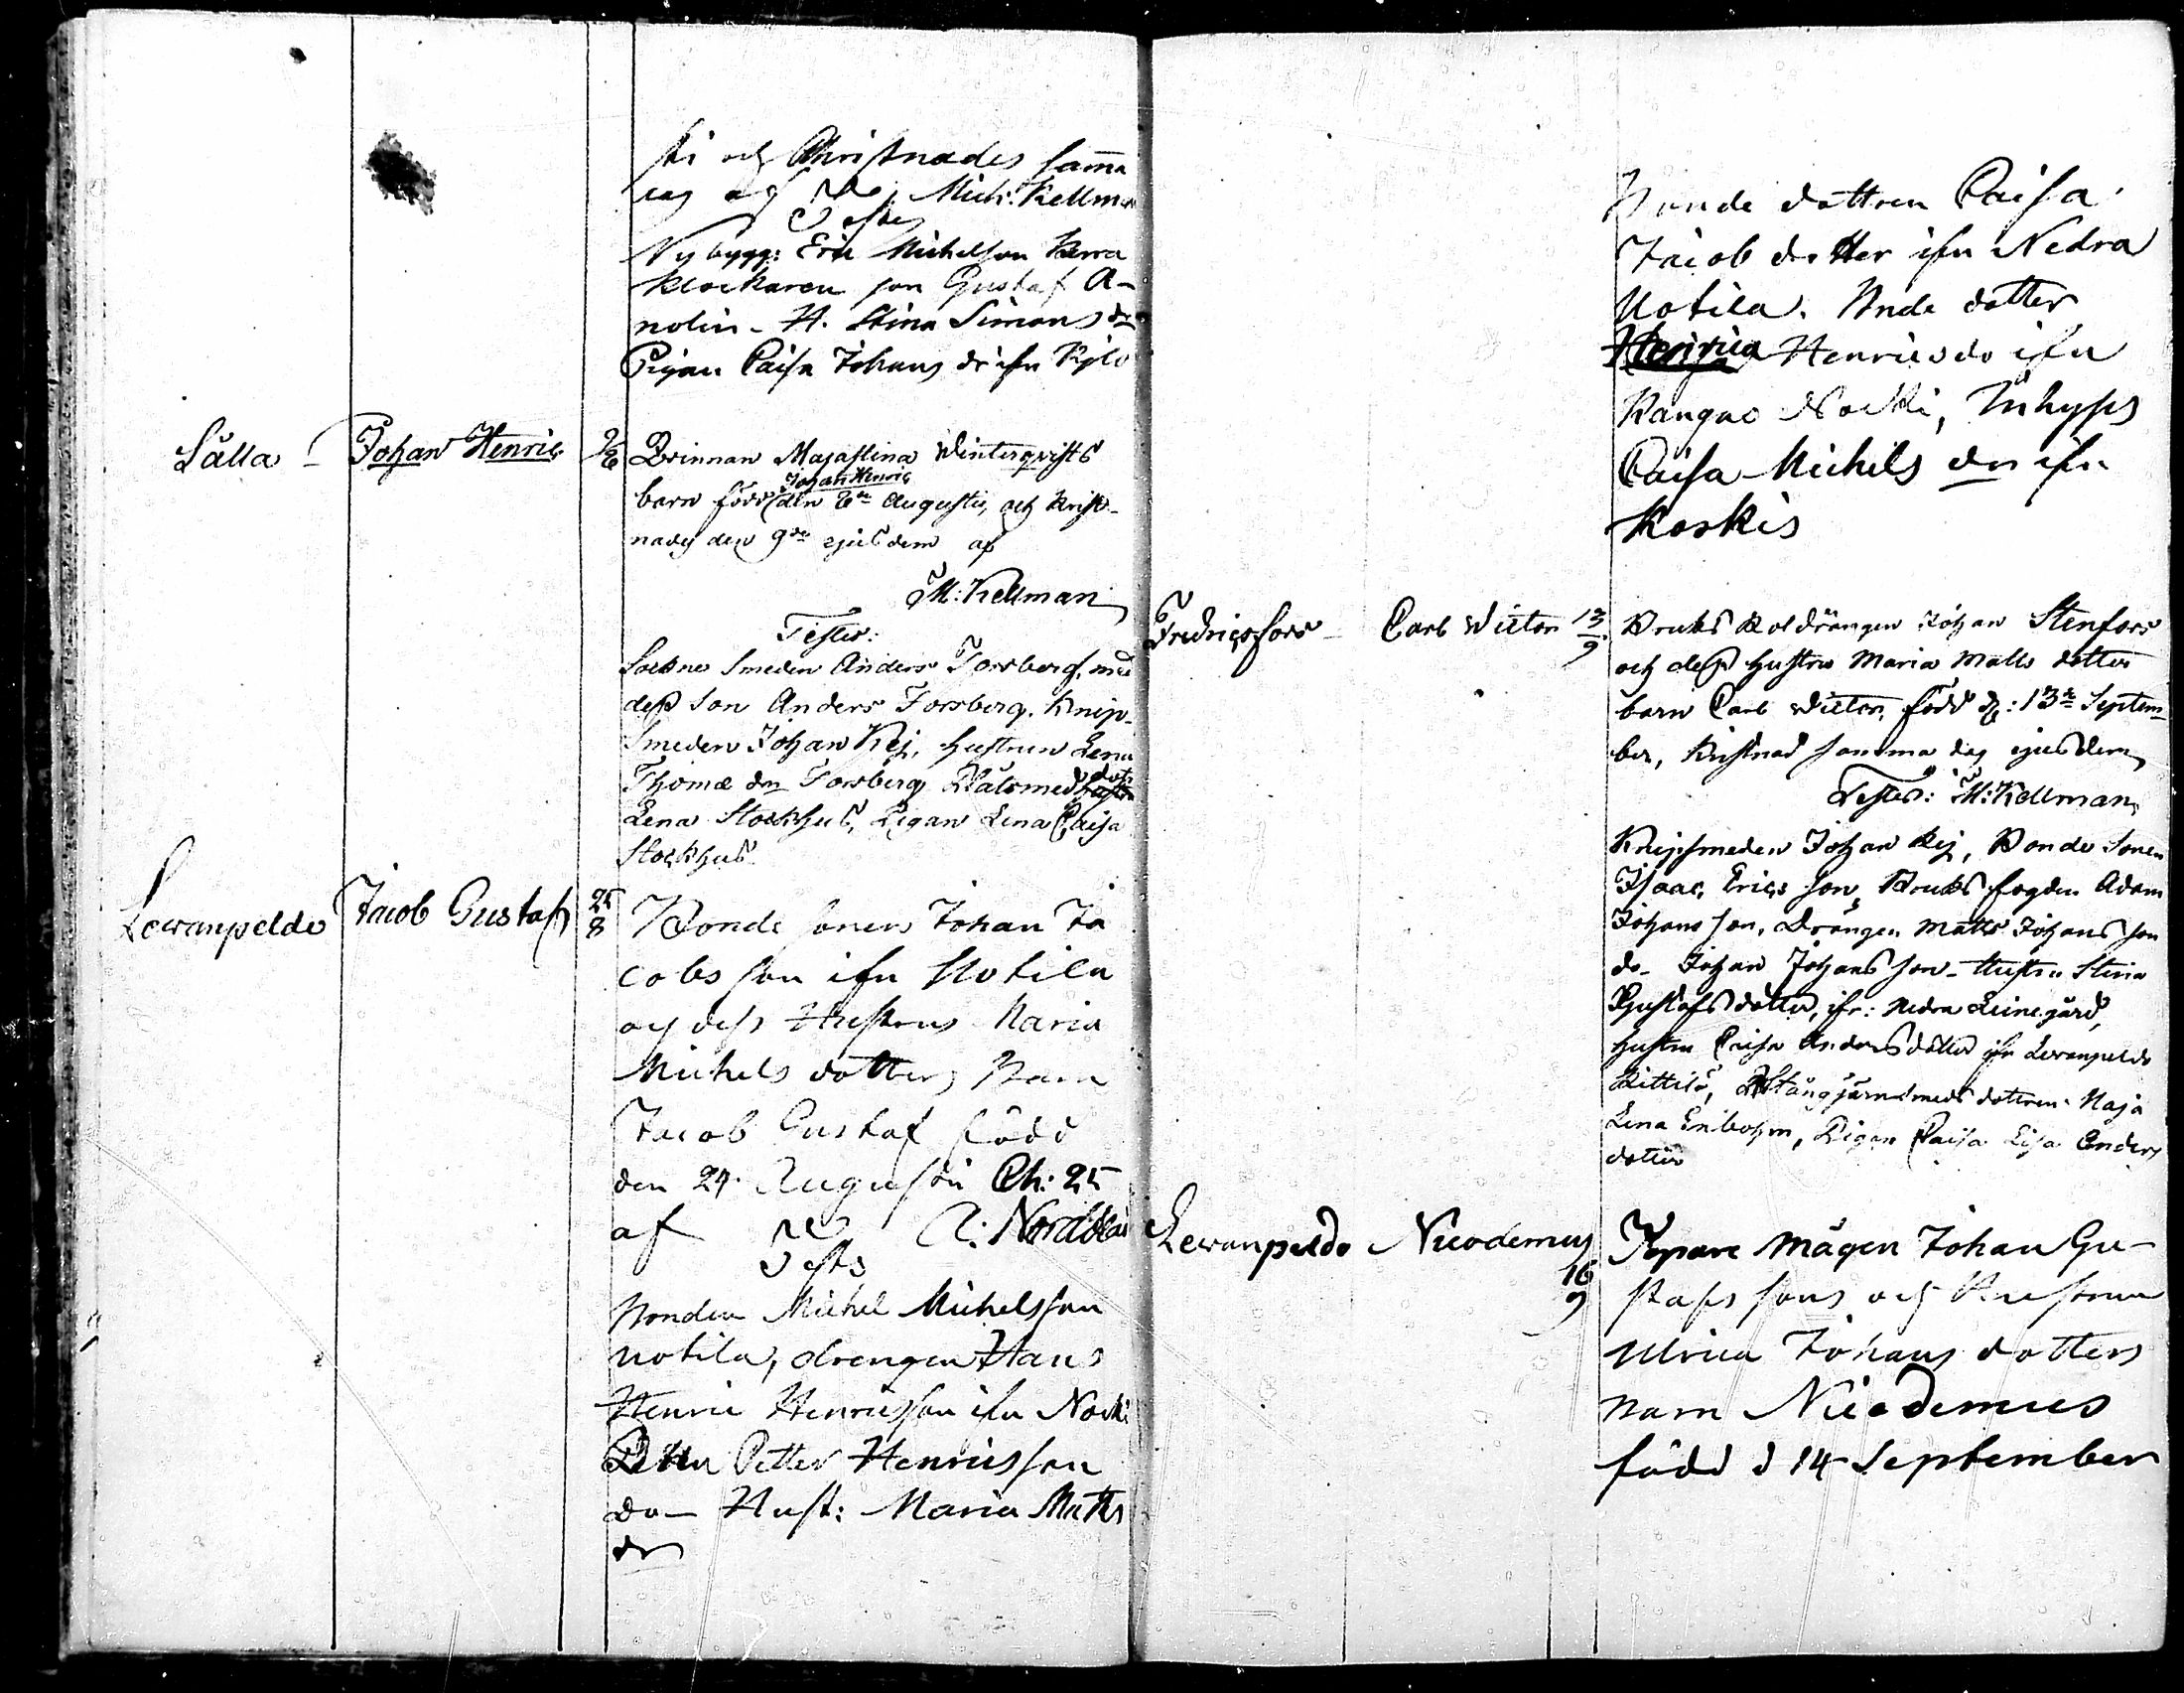 sti och Christnades samma
dag af Mich: Kellman
Testes
Nybygg: Eric Michelson Kerra
Klockaren son Gustaf A-
nolin - H. Stina Simons dr
Pigan Caisa Johans dr ifrn Kylö
Lålla - Johan Henric 9/8 Qvinnan Majastina Winterqvists
Johan Henric
barn född den 6te Augustii, och Krist-
nades den 9de ejusdem af
M: Kellman
Testes:
Sockne Smeden Anders Forsberg, med
dess Son Anders Forsberg. Knip-
Smeden Johan Rej, hustrun Lena
Thomæ dr Forsberg dott:
Lena Stockhus, Pigan Lena Caisa
Stockhus.
Lewanpeldo Jacob Gustaf 25/8 Bonde sonen Johan Ja
cobs son ifrn Uotila
och dess Hustrus Maria
Michels dotters Barn
Jacob Gustaf född
den 24 Augusti Ch: 25
af A: Nordblad
Tests
Bonden Michel Michelsson
Uotila, drengen Hans
Henric Henricsson ifrn Nocki
Petter Henricsson
do - Hust: Maria Matts
dr
Bonde dottren Caisa
Jacob dotter ifrn Nedra
Uotila. Bnde dotter
Henrica Henrics do ifrn
Kangas Nocki, Inhyses
Caisa Michels dr ifrn
Koskis
Fredricsfors - Carl Wictor 13/9 Bruks Koldrängen Johan Stenfors
och dess hustru Maria Matts dotters
barn Carl Wictor, född d: 13de Septem-
ber, Kristnad samma dag ejusdem
Testes: M: Kellman
Knipsmeden Johan Rej, Bonde Sonen
Isaac Erics son, Bruks fogden Adam
Johans son, Drängen Matts Johans son
do - Johan Johans son - Hustru Stina
Gustafs dotter, ifr: Nedra Leinegård,
hustru Caisa Anders dotter ifrn Lewanpeldo
Kittilä, Stångjärnsmeds dottren Maja
Lena Enbohm, Pigan Caisa Lisa Anders
dotter
Lewanpeldo Nicodemus 16/9 Torpare Mågen Johan Gu-
stafs sons och Hustrun
Ulrica Johans dotters
Barn Nicodemus
född d 14 September